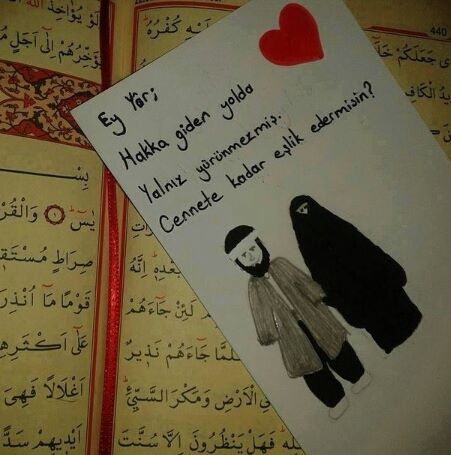 Ey Yâr;
Hakka giden yolda
Yalnız yürünmezmiş.
Cennete kadar eşlik edermisin?
440
جَعَلَكُمْ
كُفْرُهُ
لَئِنْ جَٓاءَهُمْ
جَٓاءَهُمْ نَذٖيرٌ
الْاَرْضِ وَمَكْرَ السَّيِّئِ
فَهَلْ يَنْظُرُونَ اِلَّا سُنَّتَ
اِلٰٓى اَجَلٍ
يٰسٓ ۝ وَالْقُرْ
صِرَاطٍ
قَوْمًا مَٓا اُنْذِرَ
عَلٰٓى
اَغْلَالًا فَهِىَ
اَيْدٖيهِمْ سَدًّا